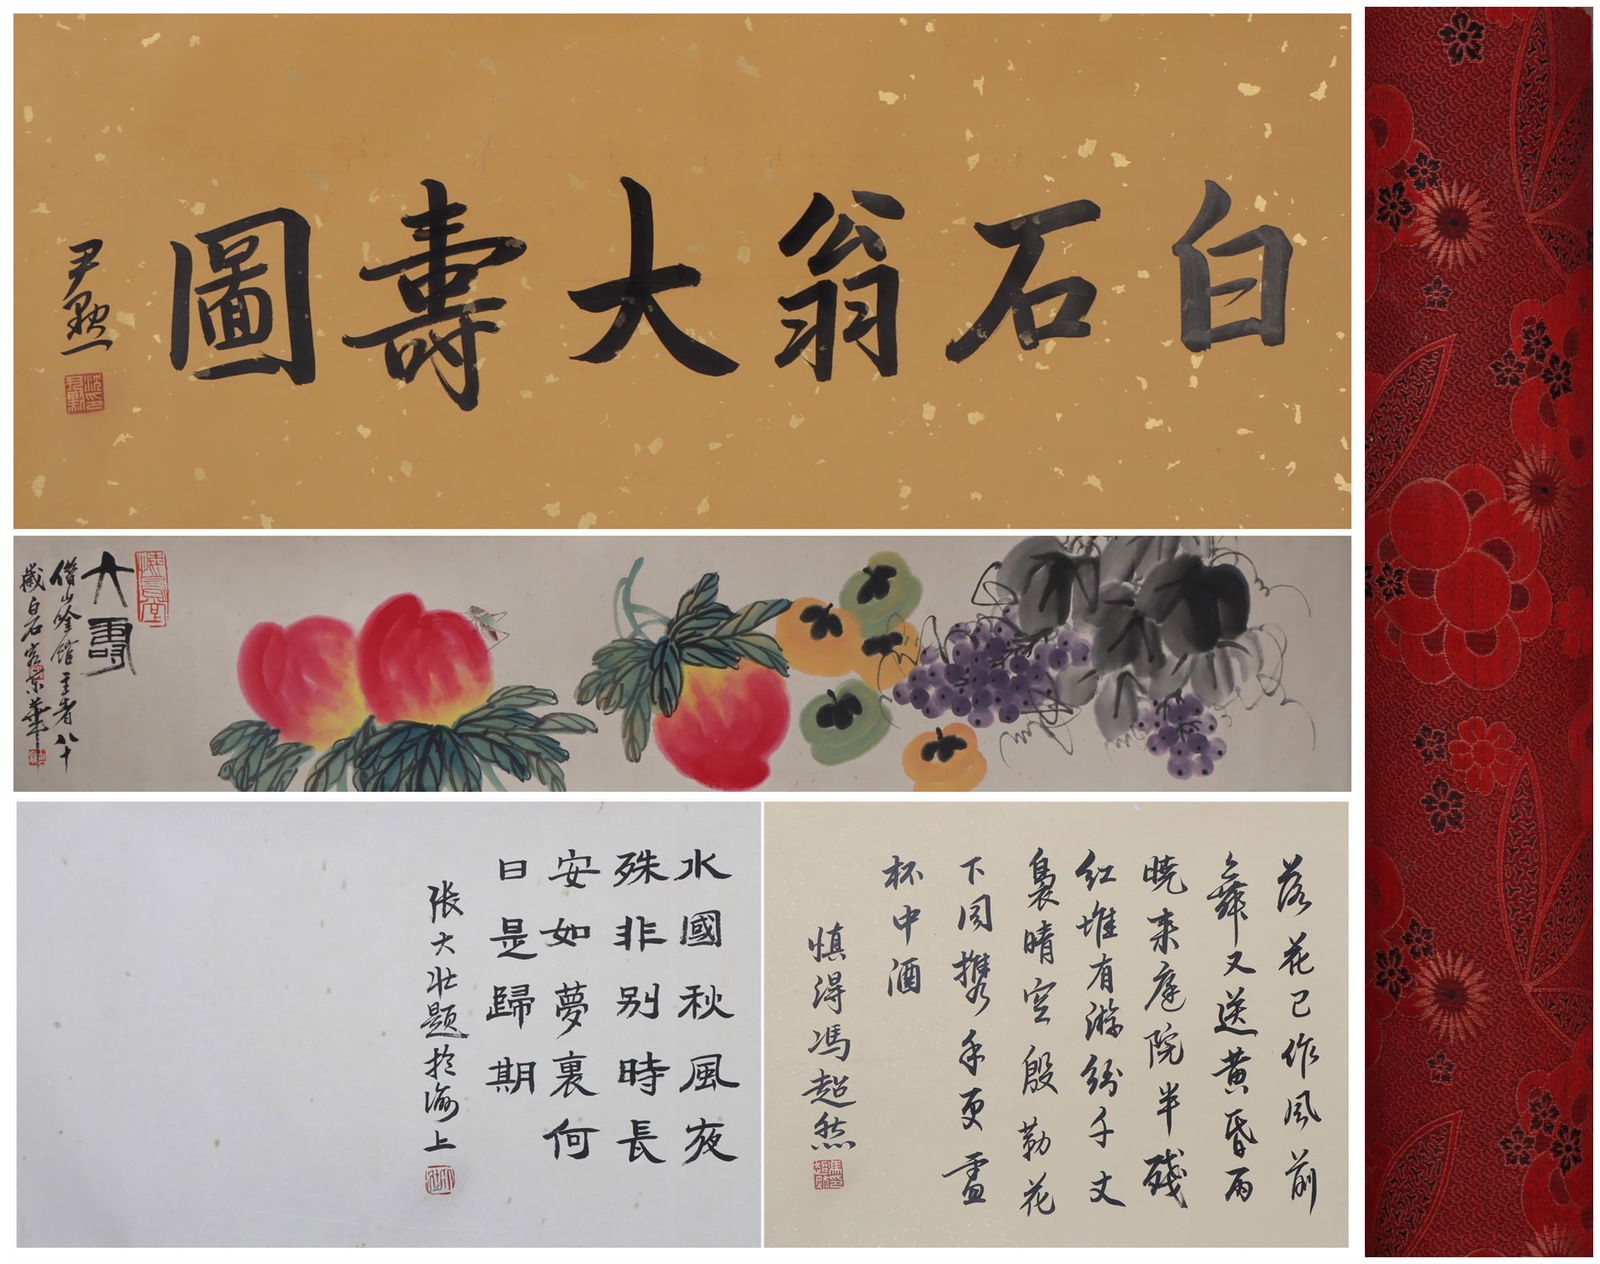 白石翁大壽圖
尹默
大壽
借山吟館主者八十
歲白石
落花已作風前
舞又送黄昏雨
曉来庭院半殘
紅堆有游絲千丈
裊晴空殷勤花
下同携手更盡
杯中酒
慎得馮超然
水國秋風夜
殊非别時長
安如夢裏何
日是歸期
張大壯題於海上